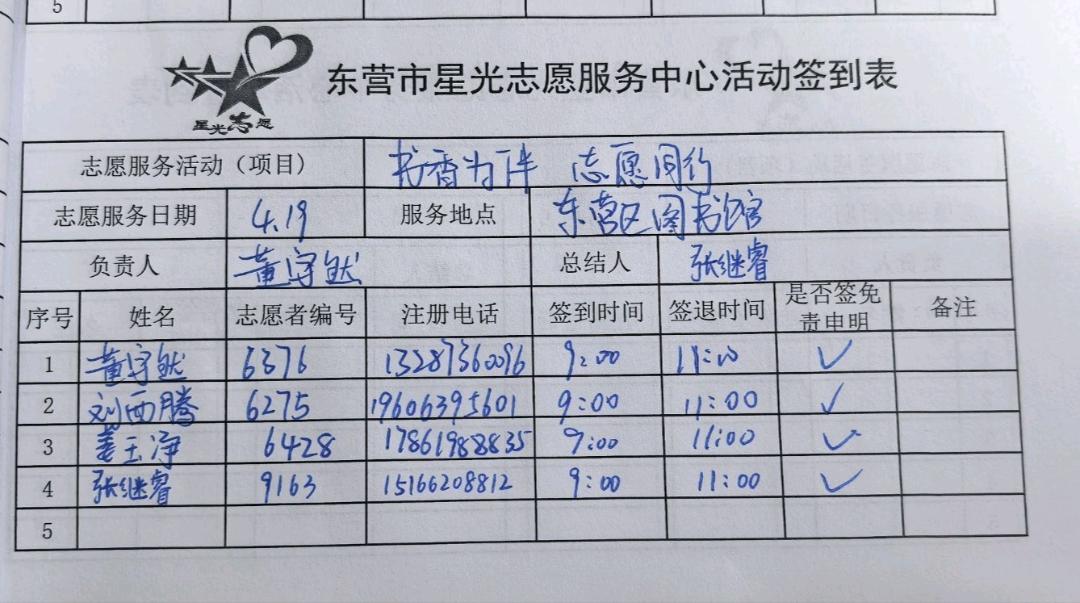 5
星光志愿
东营市星光志愿服务中心活动签到表
志愿服务活动（项目） 书香为伴 志愿同行
志愿服务日期 4.19 服务地点 东营区图书馆
负责人 董宇然 总结人 张继睿
序号 姓名 志愿者编号 注册电话 签到时间 签退时间 是否签免责申明 备注
1 董宇然 6376 13287360096 9:00 11:00 ✓
2 刘西腾 6275 19606395601 9:00 11:00 ✓
3 姜玉净 6428 17861988835 9:00 11:00 ✓
4 张继睿 9163 15166208812 9:00 11:00 ✓
5